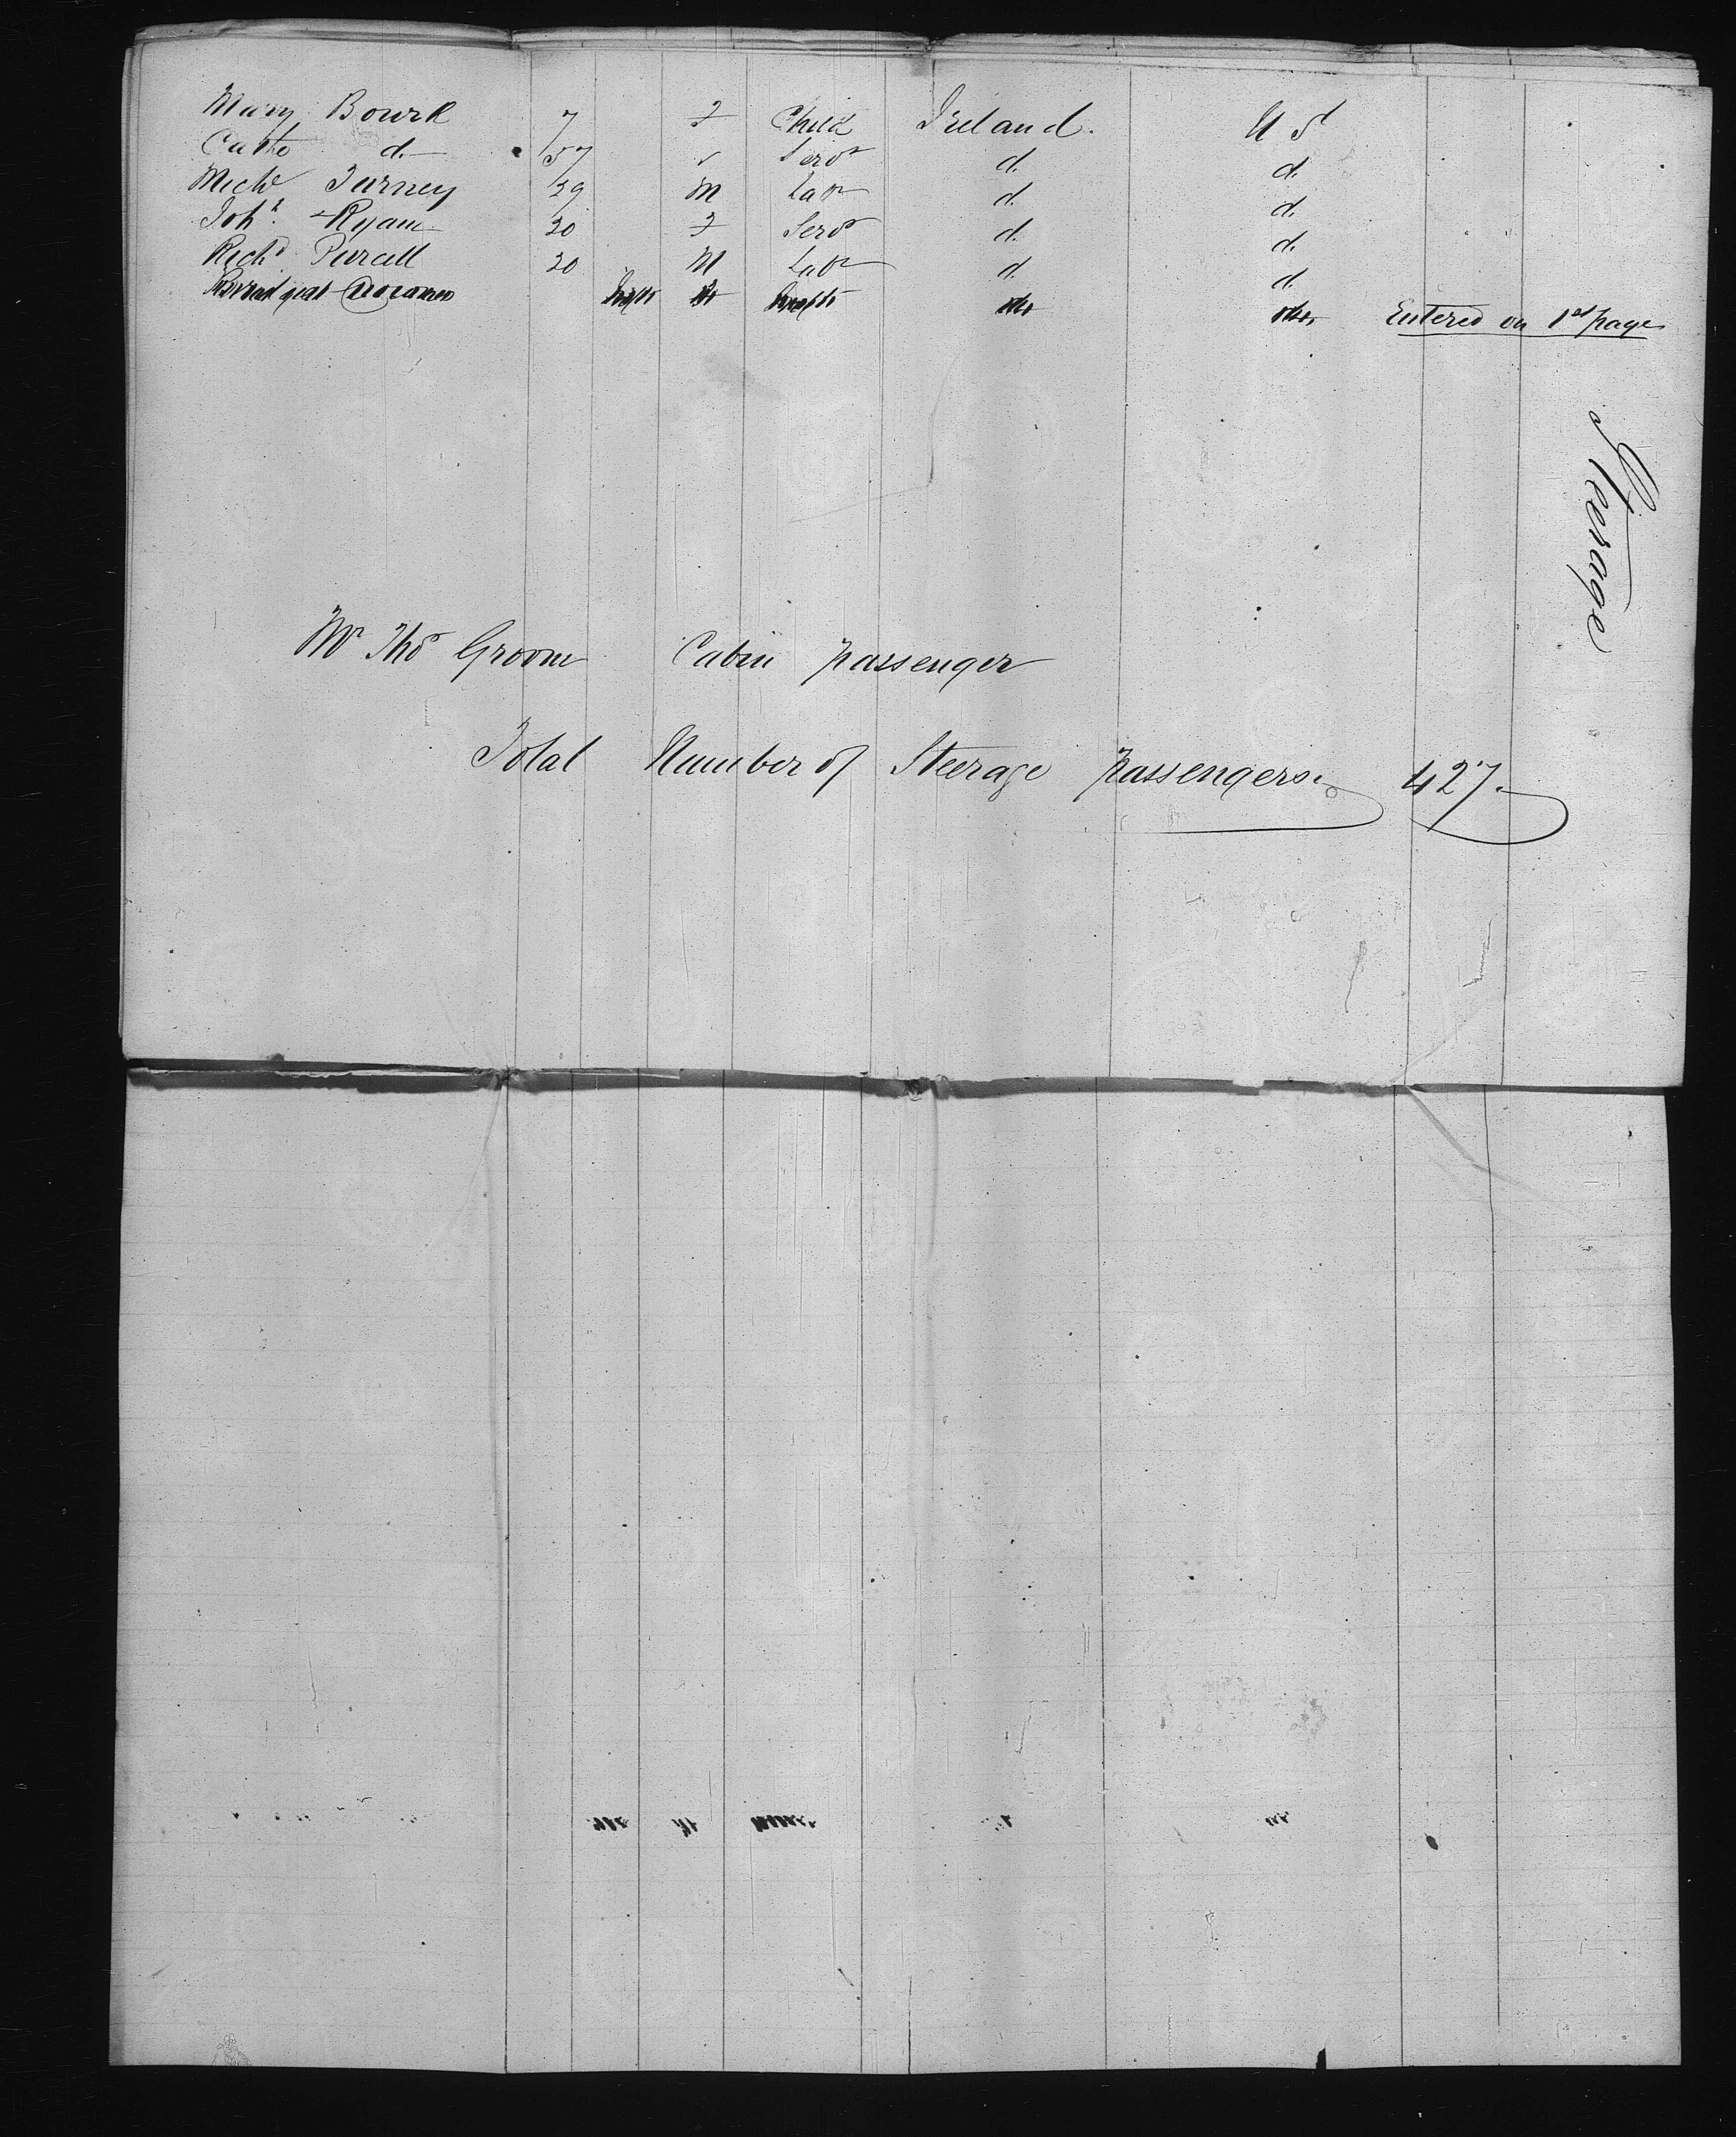 Mary Bourk 7 F Child Ireland. U S
Cathe d. 57 " Servt d. d.
Michl Turney 29 M Labr d. d.
Joha Ryan 20 F Servt d. d.
Richd Purcell 20 M Labr d. d.
Entered on 1st page
Steerage
Mr Thos Groom Cabin passenger
Total Number of Steerage passengers. 427.